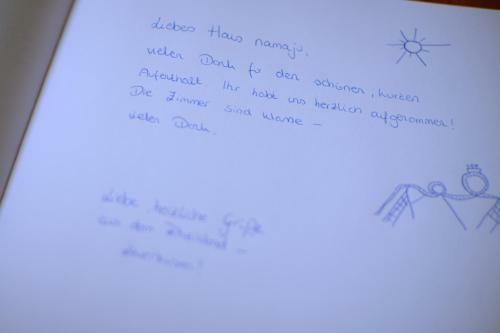 Liebes Haus namaju,
vielen Dank für den schönen, kurzen
Aufenthalt. Ihr habt uns herzlich aufgenommen!
Die Zimmer sind klasse –
vielen Dank.
Liebe herzliche Grüße
aus dem Rheinland –